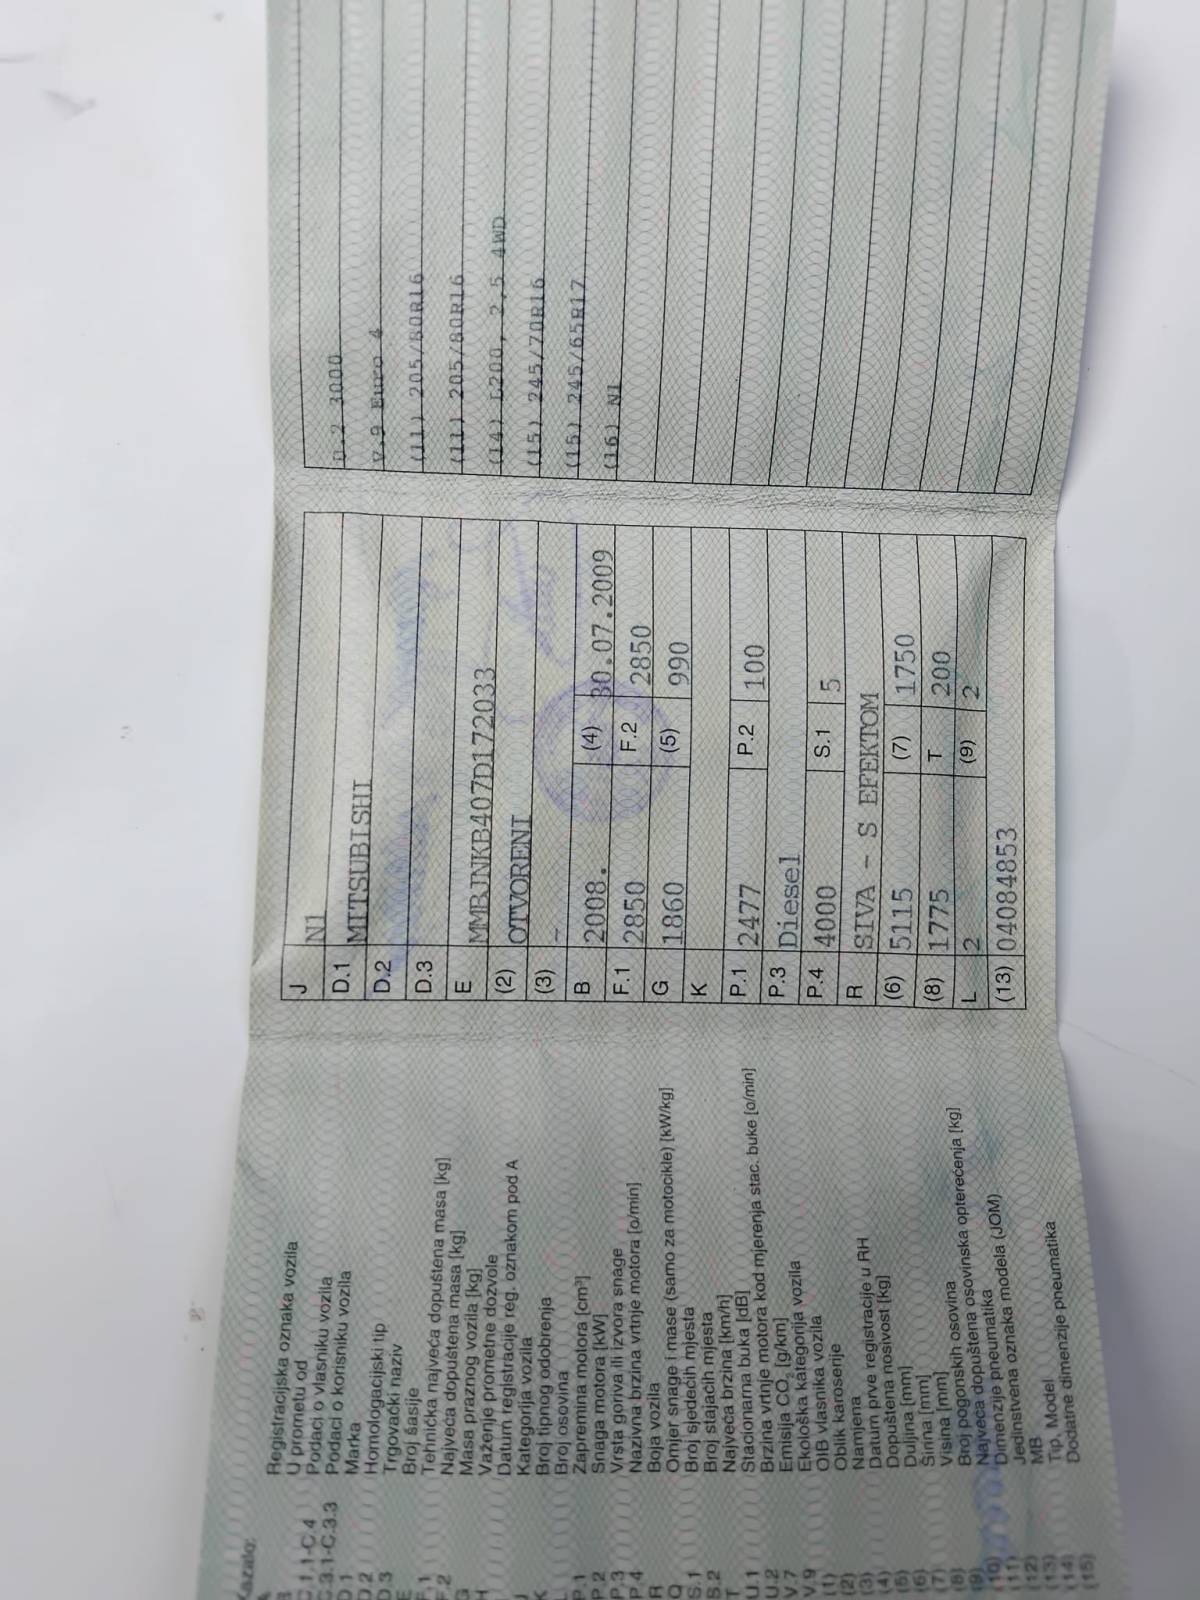 Kazalo:
Registracijska oznaka vozila
B U prometu od
C.1.1-C.4 Podaci o vlasniku vozila
C.3.1-C.3.3 Podaci o korisniku vozila
D.1 Marka
D.2 Homologacijski tip
D.3 Trgovački naziv
E Broj šasije
F.1 Tehnička najveća dopuštena masa [kg]
F.2 Najveća dopuštena masa [kg]
G Masa praznog vozila [kg]
H Važenje prometne dozvole
Datum registracije reg. oznakom pod A
J Kategorija vozila
K Broj tipnog odobrenja
L Broj osovina
P.1 Zapremina motora [cm³]
P.2 Snaga motora [kW]
P.3 Vrsta goriva ili izvora snage
P.4 Nazivna brzina vrtnje motora [o/min]
R Boja vozila
Q Omjer snage i mase (samo za motocikle) [kW/kg]
S.1 Broj sjedećih mjesta
S.2 Broj stajaćih mjesta
T Najveća brzina [km/h]
U.1 Stacionarna buka [dB]
U.2 Brzina vrtnje motora kod mjerenja stac. buke [o/min]
V.7 Emisija CO₂ [g/km]
V.9 Ekološka kategorija vozila
(1) OIB vlasnika vozila
(2) Oblik karoserije
(3) Namjena
(4) Datum prve registracije u RH
(5) Dopuštena nosivost [kg]
(6) Duljina [mm]
(7) Širina [mm]
(8) Visina [mm]
(9) Broj pogonskih osovina
(10) Najveća dopuštena osovinska opterećenja [kg]
(11) Dimenzije pneumatika
(12) Jedinstvena oznaka modela (JOM)
(13) MB
(14) Tip, Model
(15) Dodatne dimenzije pneumatika
J N1
D.1 MITSUBISHI
D.2
D.3
E MMBJNKB407D172033
(2) OTVORENI
(3) -
B 2008. (4) 30.07.2009
F.1 2850 F.2 2850
G 1860 (5) 990
K
P.1 2477 P.2 100
P.3 Diesel
P.4 4000 S.1 5
R SIVA - S EFEKTOM
(6) 5115 (7) 1750
(8) 1775 T 200
L 2 (9) 2
(13) 04084853
U.2 3000
V.9 Euro 4
(11) 205/80R16
(11) 205/80R16
(14) L200, 2,5 4WD
(15) 245/70R16
(15) 245/65R17
(16) N1